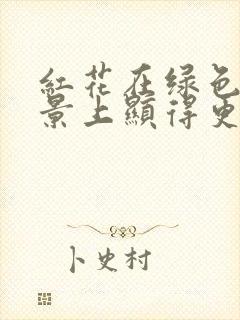 紅花在绿色
景上顯得史
卜史村